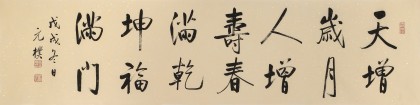 天增
歲月
人增
壽春
滿乾
坤福
滿門
戊戌冬日
元